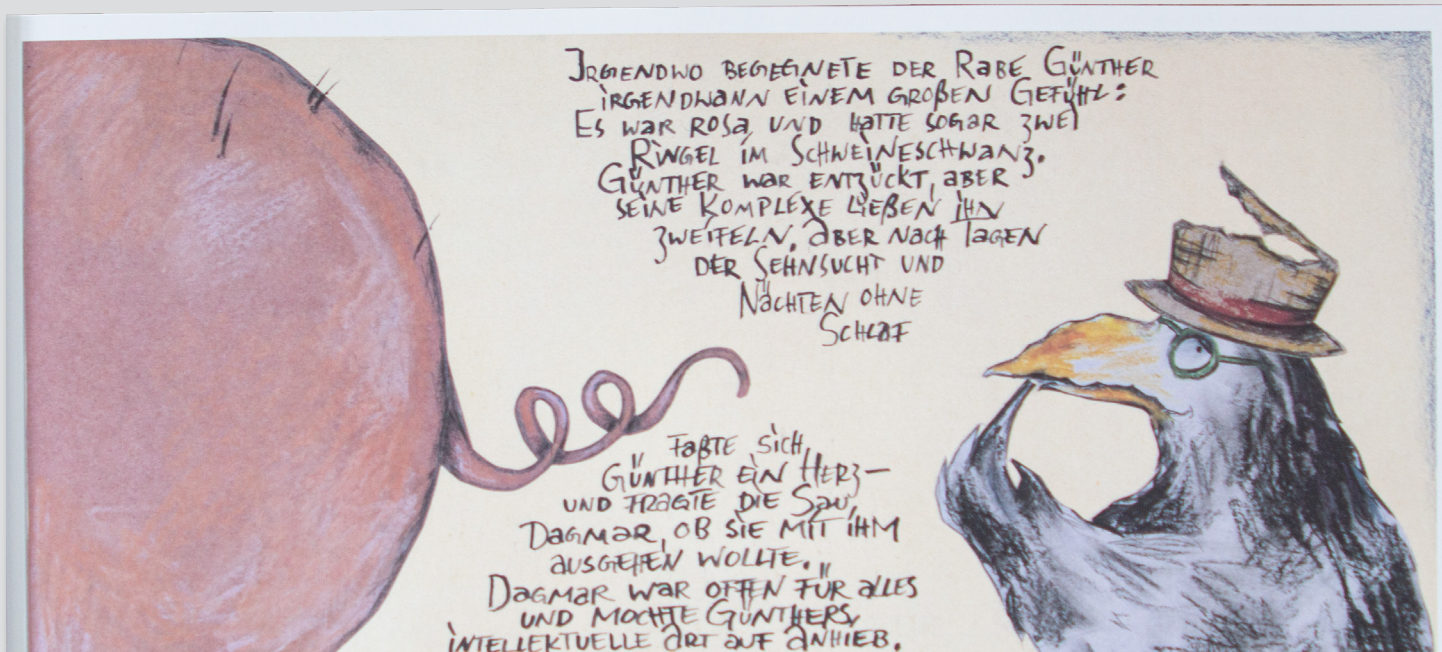 Irgendwo begegnete der Rabe Günther
irgendwann einem großen Gefühl:
Es war rosa und hatte sogar zwei
Ringel im Schweineschwanz.
Günther war entzückt, aber
seine Komplexe ließen ihn
zweifeln. Aber nach Tagen
der Sehnsucht und
Nächten ohne
Schlaf
faßte sich
Günther ein Herz –
und fragte die Sau,
Dagmar, ob sie mit ihm
ausgehen wollte.
Dagmar war offen für alles
und mochte Günthers
intellektuelle Art auf Anhieb.